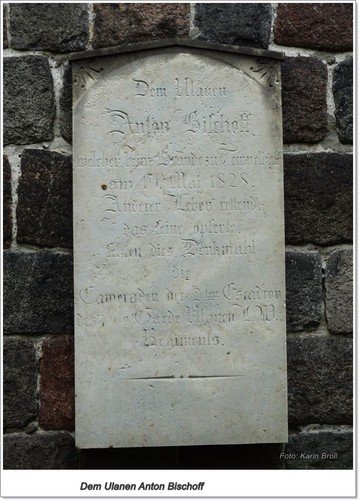 Dem Ulanen
Anton Bischoff
welcher beim Brande zu Tempelhof
am 19. Mai 1828.
Anderer Leben rettend,
das seine opferte
dies Denkmahl
die
Cameraden der 2ten Escadron
Garde Ulanen L.W.
Regiments.
Foto: Karin Broll
Dem Ulanen Anton Bischoff